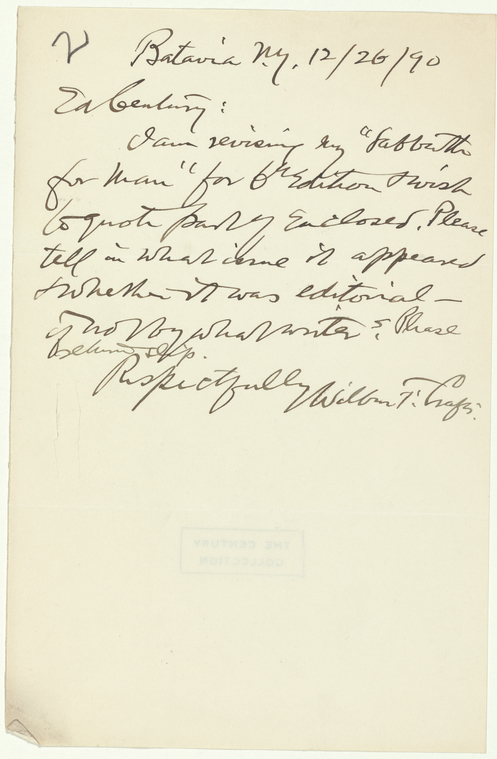 2
Batavia N.Y. 12/26/90
Ed Century:
I am revising my "Sabbath
for Man" for 6th Edition & wish
to quote part of Enclosed. Please
tell in what issue it appeared
& whether it was editorial —
if not by what writer. Please
return slip.
Respectfully Wilbur F. Crafts.
THE CENTURY
COLLECTION